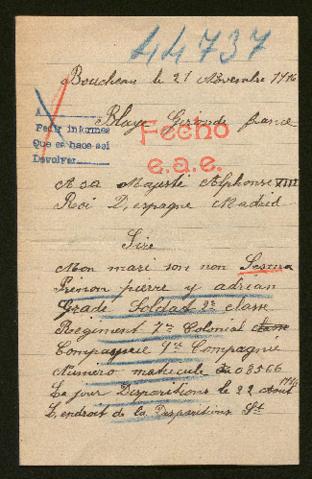 44737
Boucheau le 21 Novembre 1916
Blaye Gironde france
A
Pedir informes
Que se hace así
Devolver
Fecho
e.a.e.
A sa Majesté Alphonse XIII
Roi D'espagne Madrid
Sire
Mon mari son non Sesma
Prénom pierre y adrian
Grade Soldat 2e classe
Regiment 7me Colonial
Compagnie 9me Compagnie
Numéro matricule 03566
Le jour Disparitions le 22 Aout 1914
L'endroit de la Disparitions St